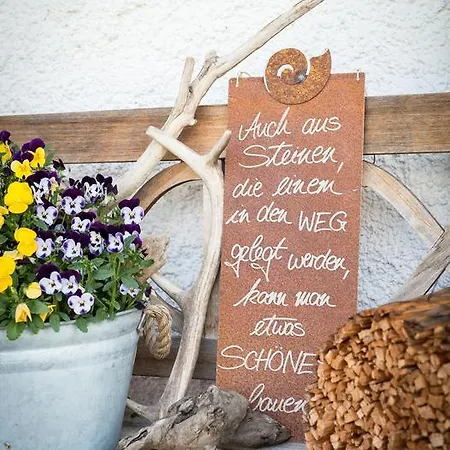 Auch aus
Steinen,
die einem
in den WEG
gelegt werden,
kann man
etwas
SCHÖNES
bauen